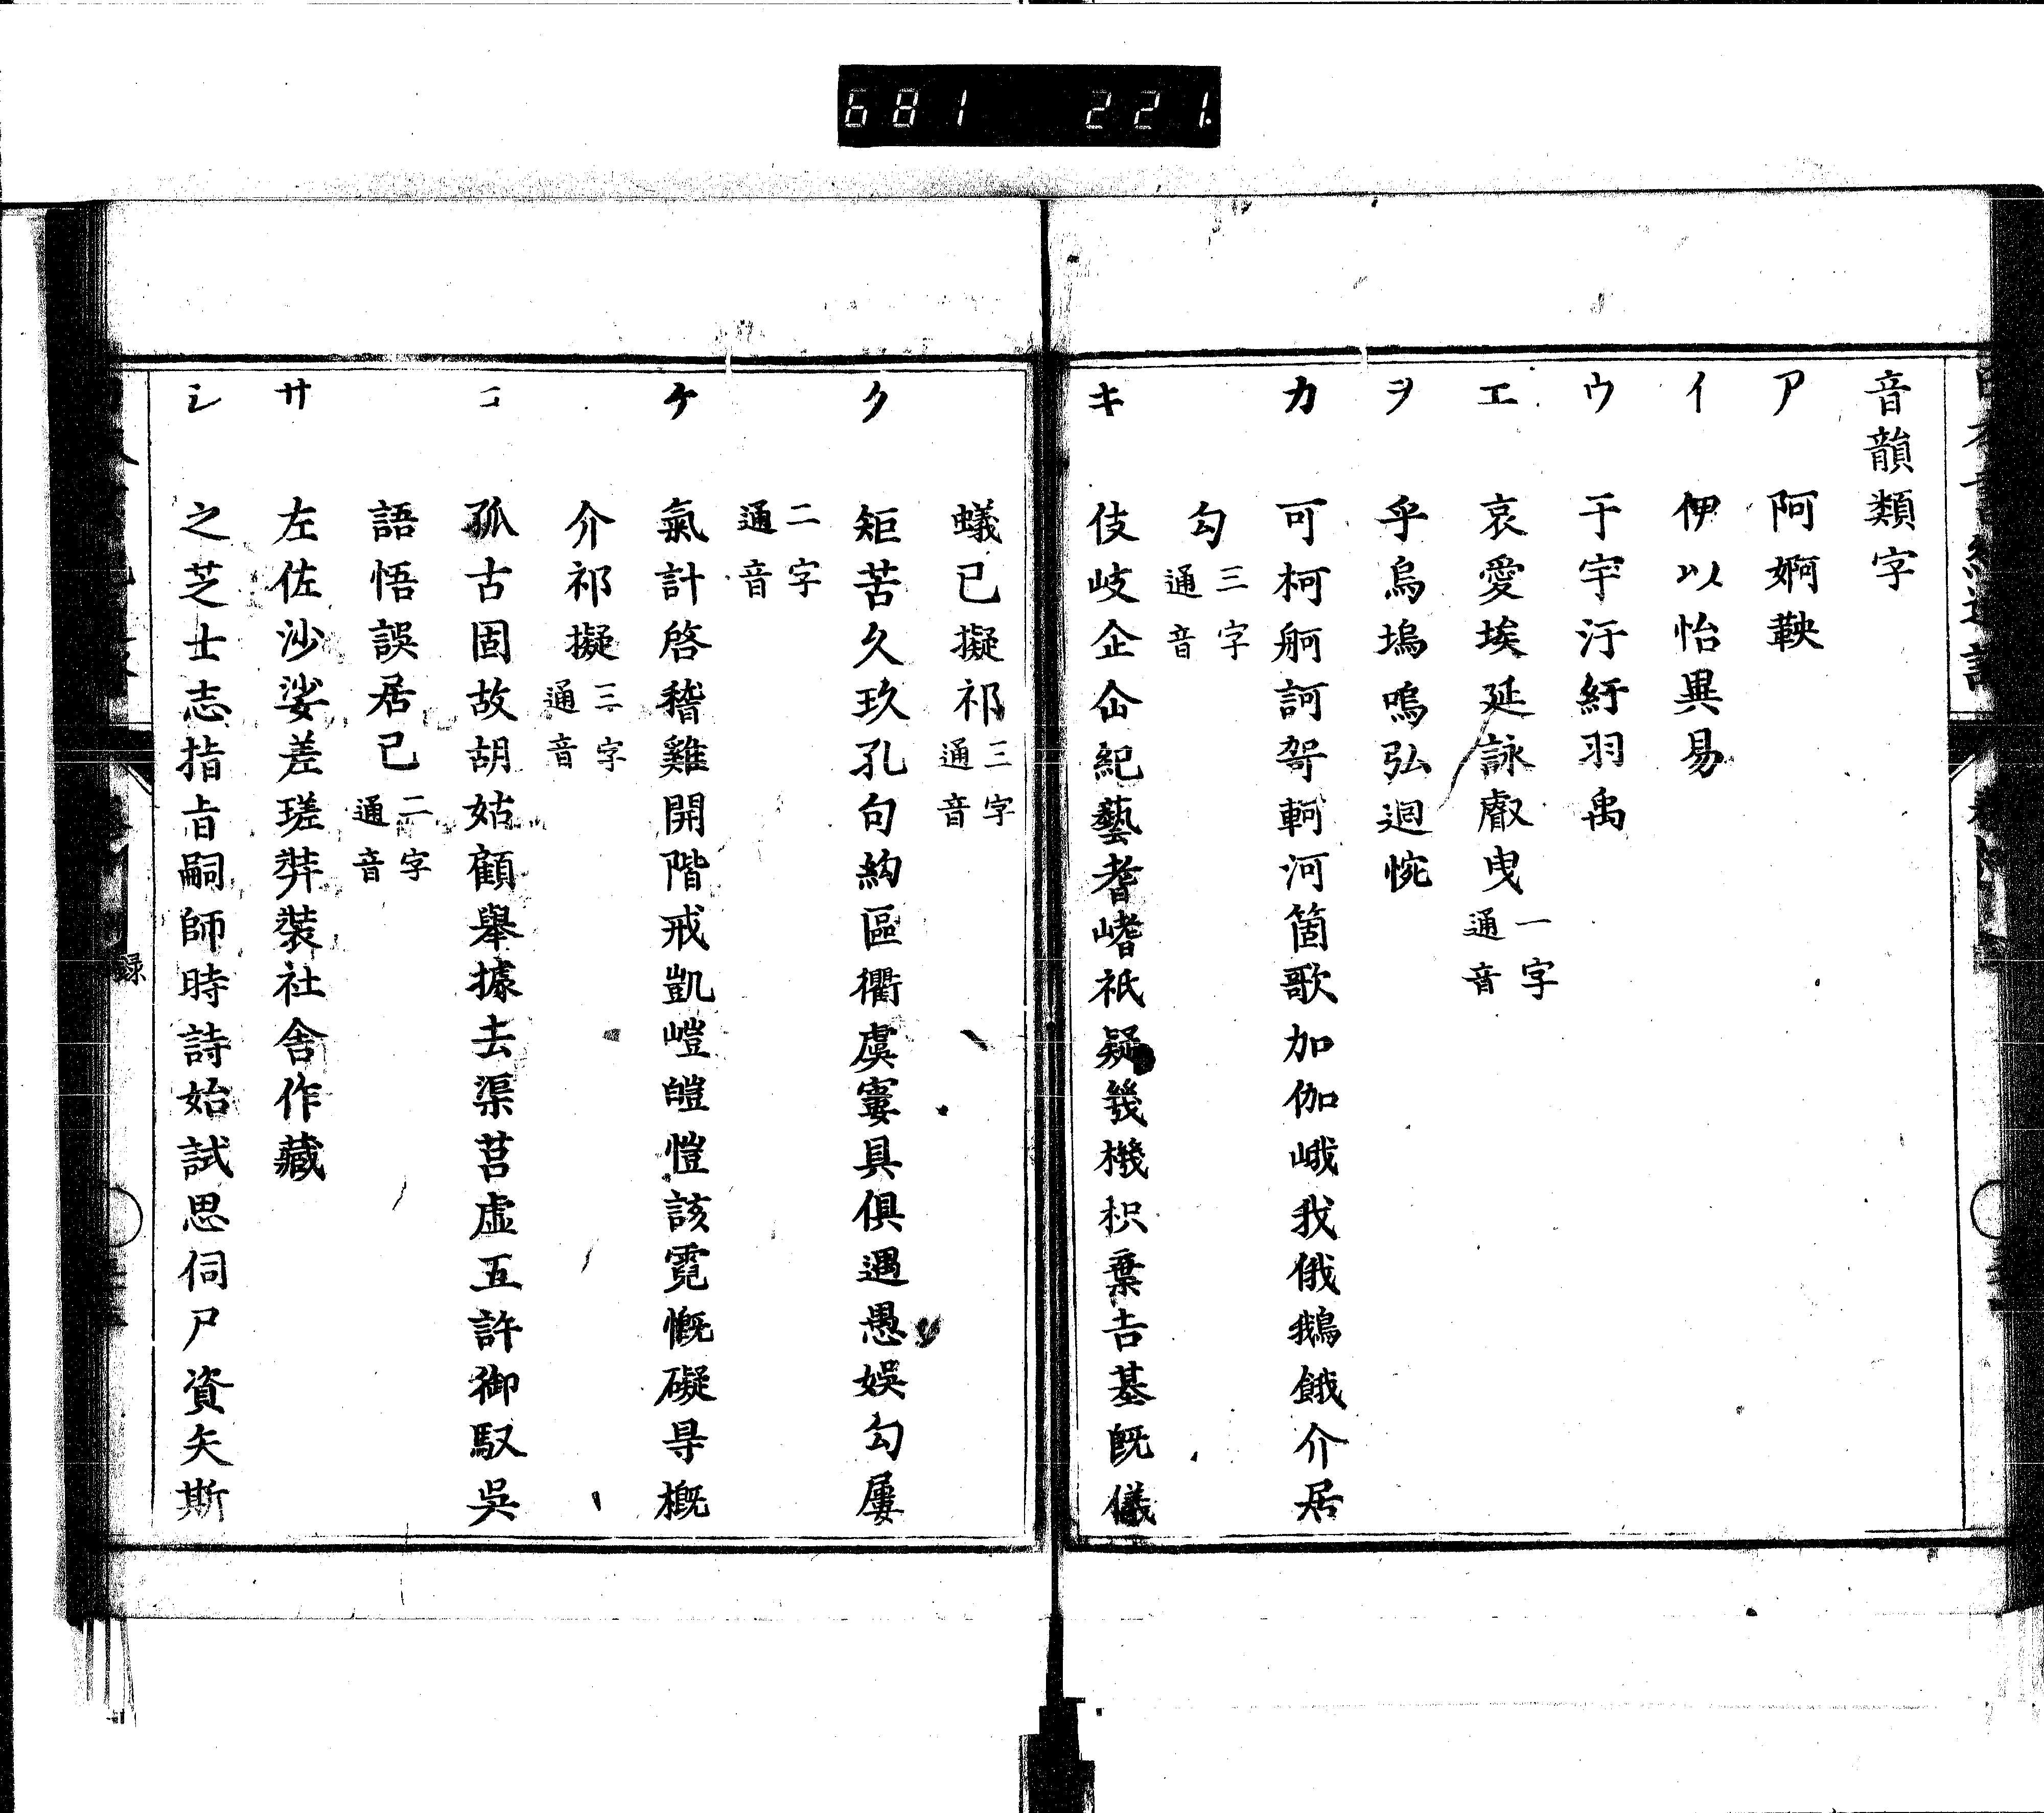 681 221
音韻類字
ア 阿婀鞅
イ 伊以怡異易
ウ 于宇汙紆羽禹
エ 哀愛埃延詠叡曳 一字通音
ヲ 乎烏塢嗚弘廻惋
カ 可柯舸訶哿軻河箇歌加伽峨我俄鵝餓介居
勾 三字通音
キ 伎岐企仚紀藝耆嗜祇疑幾機枳棄吉基既儀
蟻已擬祁 三字通音
ク 矩苦久玖孔句絇區衢虞寠具俱遇愚娛勾屨
二字通音
ケ 氣計啓稽雞開階戒凱嵦皚愷該霓慨礙㝵概
介祁擬 三字通音
コ 孤古固故胡姑顧舉據去渠莒虛五許御馭吳
語悟誤居己 二字通音
サ 左佐沙娑差瑳弉裝社舍作藏
シ 之芝士志指旨嗣師時詩始試思伺尸資矢斯
錄